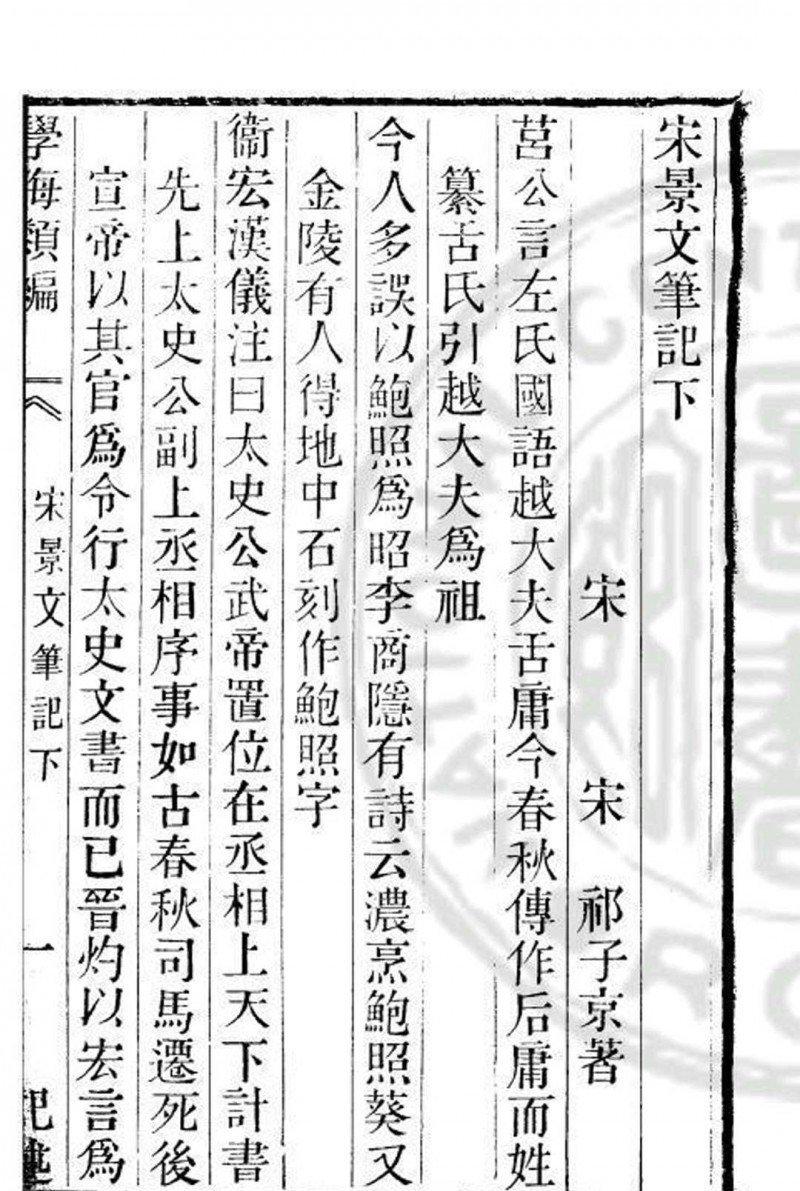 宋景文筆記下
宋 宋 祁子京著
莒公言左氏國語越大夫舌庸今春秋傳作后庸而姓
纂舌氏引越大夫爲祖
今人多誤以鮑照爲昭李商隱有詩云濃烹鮑照葵又
金陵有人得地中石刻作鮑照字
衞宏漢儀注曰太史公武帝置位在丞相上天下計書
先上太史公副上丞相序事如古春秋司馬遷死後
宣帝以其官爲令行太史文書而已晉灼以宏言爲
學海類編 宋景文筆記下 一 記述